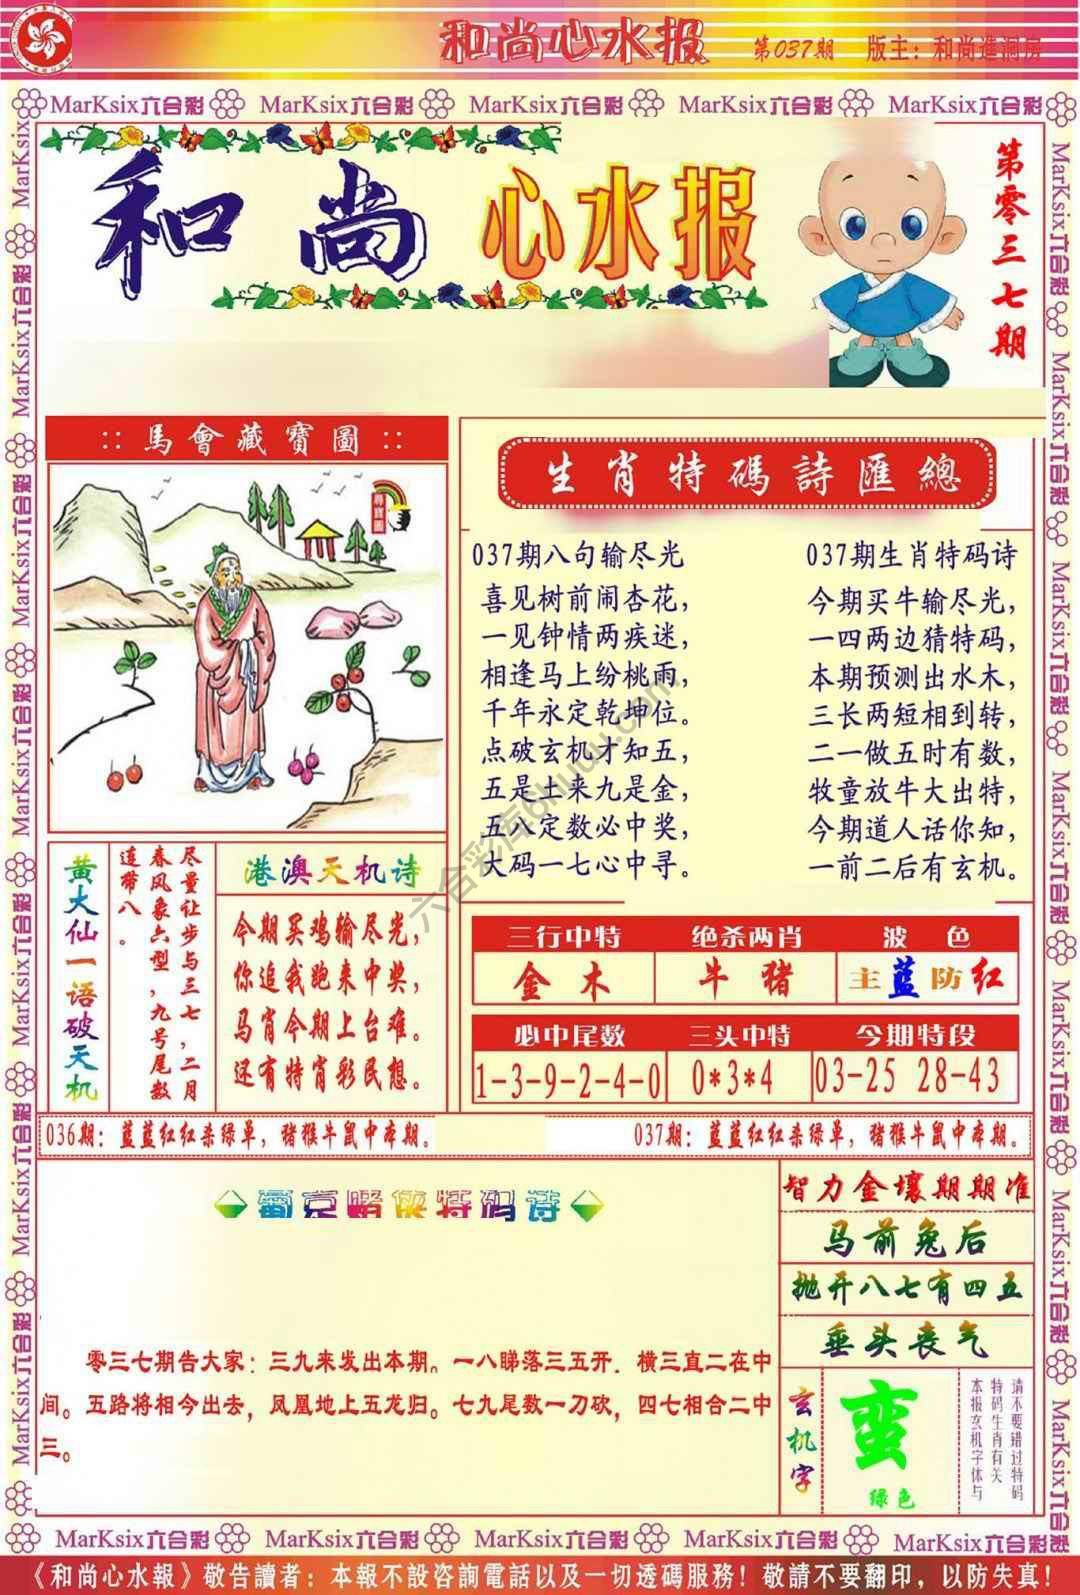 和尚心水报 第037期 版主：和尚進洞房
MarKsix六合彩 MarKsix六合彩 MarKsix六合彩 MarKsix六合彩 MarKsix六合彩
和尚心水报
第零三七期
::馬會藏寶圖::
尋寶圖
生肖特碼詩匯總
037期八句输尽光
喜见树前闹杏花，
一见钟情两疾迷，
相逢马上纷桃雨，
千年永定乾坤位。
点破玄机才知五，
五是土来九是金，
五八定数必中奖，
大码一七心中寻。
037期生肖特码诗
今期买牛输尽光，
一四两边猜特码，
本期预测出水木，
三长两短相到转，
二一做五时有数，
牧童放牛大出特，
今期道人话你知，
一前二后有玄机。
六合彩库6huuu.com
黄大仙一语破天机
尽量让步与三七，二月
春风象六型，九号尾数
连带八。
港澳天机诗
今期买鸡输尽光，
你追我跑来中奖，
马肖今期上台难。
还有特肖彩民想。
三行中特 绝杀两肖 波色
金木 牛猪 主蓝防红
必中尾数 三头中特 今期特段
1-3-9-2-4-0 0*3*4 03-25 28-43
036期：蓝蓝红红杀绿单，猪猴牛鼠中本期。
037期：蓝蓝红红杀绿单，猪猴牛鼠中本期。
特码诗
零三七期告大家：三九来发出本期。一八睇落三五开．横三直二在中
间。五路将相今出去，凤凰地上五龙归。七九尾数一刀砍，四七相合二中
三。
智力金壤期期准
马前兔后
抛开八七有四五
垂头丧气
玄机字
蛮
绿色
请不要错过特码
特码生肖有关
本报玄机字体与
MarKsix六合彩 MarKsix六合彩 MarKsix六合彩 MarKsix六合彩 MarKsix六合彩
《和尚心水報》敬告讀者：本報不設咨詢電話以及一切透碼服務！敬請不要翻印，以防失真！